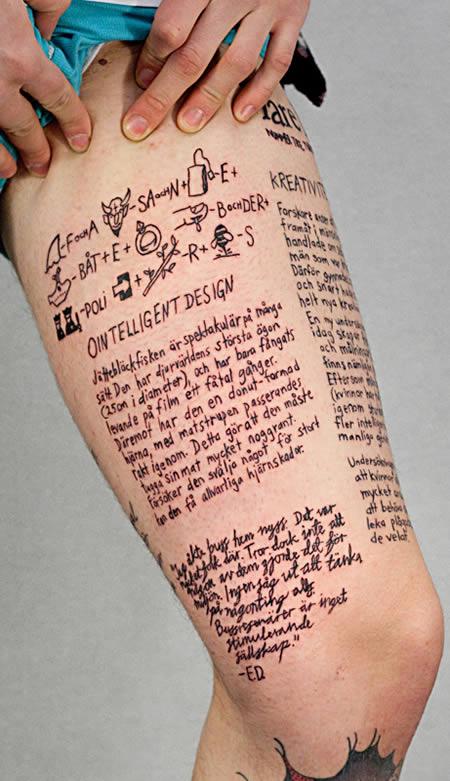 are
NUMMER TRE,
-F OCH A -S A OCH N + -E +
- BÅT + E + -B OCH DER +
-POLI + -R + -S
OINTELLIGENT DESIGN
Jättebläckfisken är spektakulär på många
sätt. Den har djurvärldens största ögon
(25cm i diameter), och har bara fångats
levande på film ett fåtal gånger.
Däremot har den en donut-formad
hjärna, med matstrupen passerandes
rakt igenom. Detta gör att den måste
tugga sin mat mycket noggrant.
Försöker den svälja något för stort
kan den få allvarliga hjärnskador.
åkte buss hem nyss. Det var
folk där. Tror dock inte att
någon av dem gjorde det för
miljön. Ingen såg ut att tänka
på någonting alls.
Bussresenärer är inget
stimulerande
sällskap."
-ED
KREATIVIT
Forskare anser
framåt i
handlade om
män som var
Därför
och snart
helt nya
En ny
idag
och
finns
Eftersom
(kvinnor
igenom
fler
manliga
Undersökn
att kvinnor
mycket
att behöva
leka
de velat.